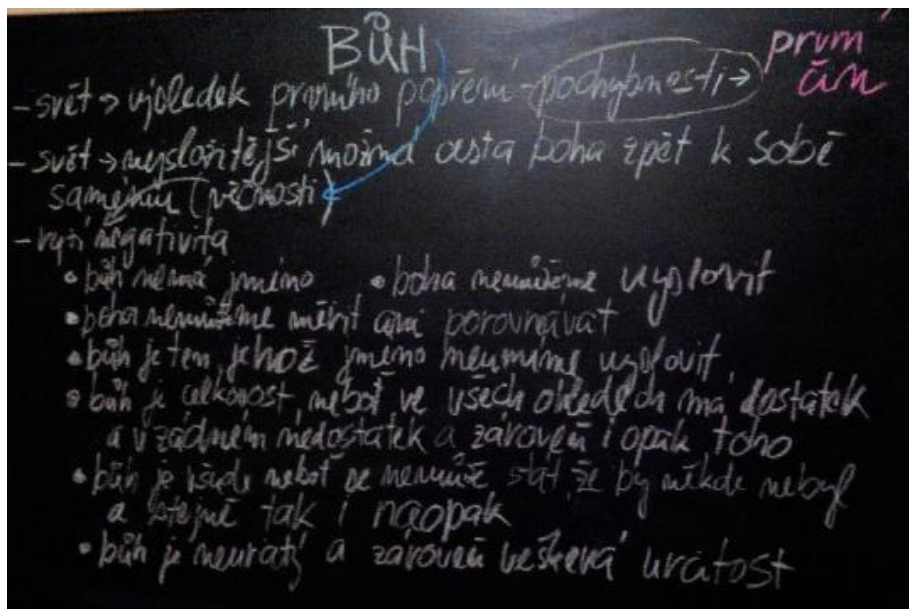 BŮH
- svět → výsledek prvního popření - pochybnosti → první čin
- svět → nejsložitější možná cesta boha zpět k sobě
samému (věčnosti)
- ryzí negativita
• bůh nemá jméno • boha nemůžeme vyslovit
• boha nemůžeme měřit ani porovnávat
• bůh je ten, jehož jméno neumíme vyslovit,
• bůh je celkovost, neboť ve všech ohledech má dostatek
a v žádném nedostatek a zároveň i opak toho
• bůh je všude neboť se nemůže stát, že by někde nebyl
a stejně tak i naopak
• bůh je neurčitý a zároveň veškerá určitost